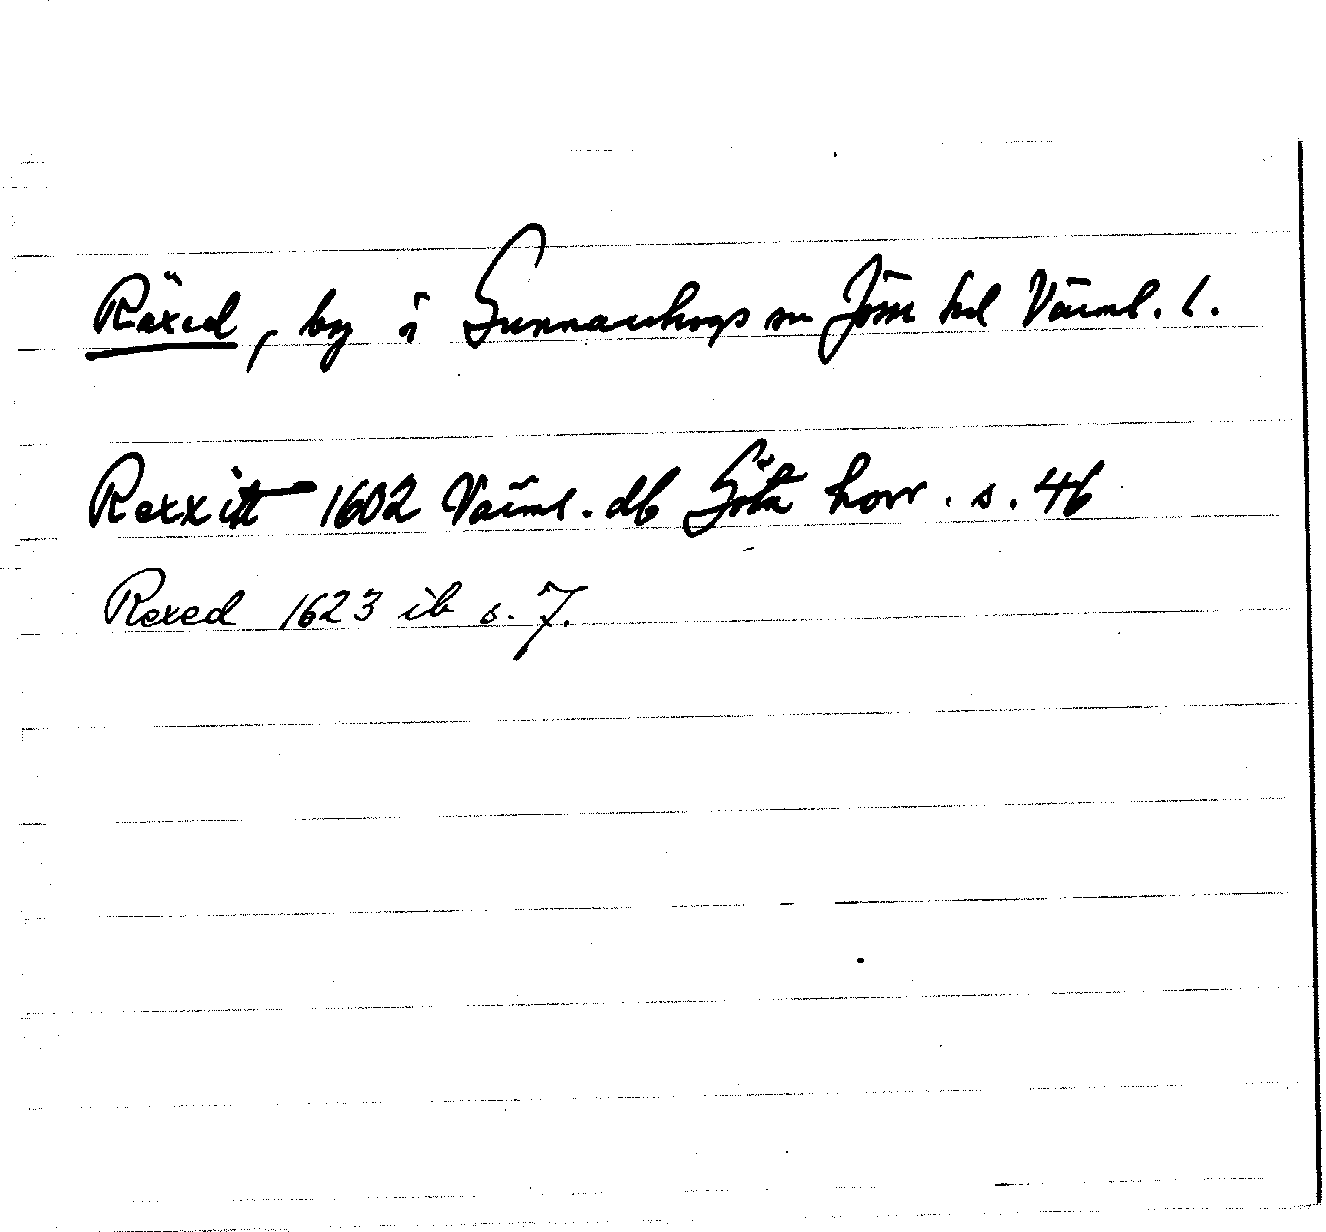 Räxed, by i Gunnarskogs sn Jösse hd Värml. l.
Rexxitt 1602 Värml. db Göta hovr. s. 46
Rexed 1623 ib s. 7.